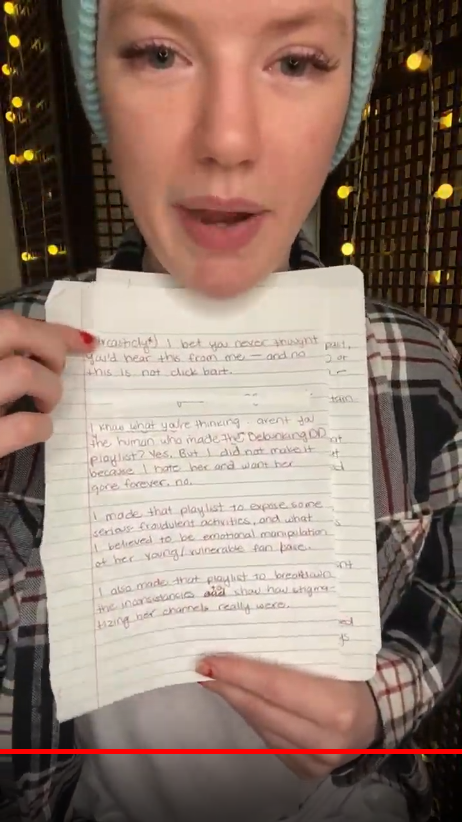 rcasticly*) I bet you never thought
you'd hear this from me — and no
this is not click bait.
I know what you're thinking. arent you
the human who made the Debunking DD
playlist? Yes. But I did not make it
because I hate her and want her
gone forever. no.
I made that playlist to expose some
serious fraudulent activities, and what
I believed to be emotional manipulation
of her young/vulnerable fan base.
I also made that playlist to breakdown
the inconsistancies and show how stigma-
tizing her channels really were.